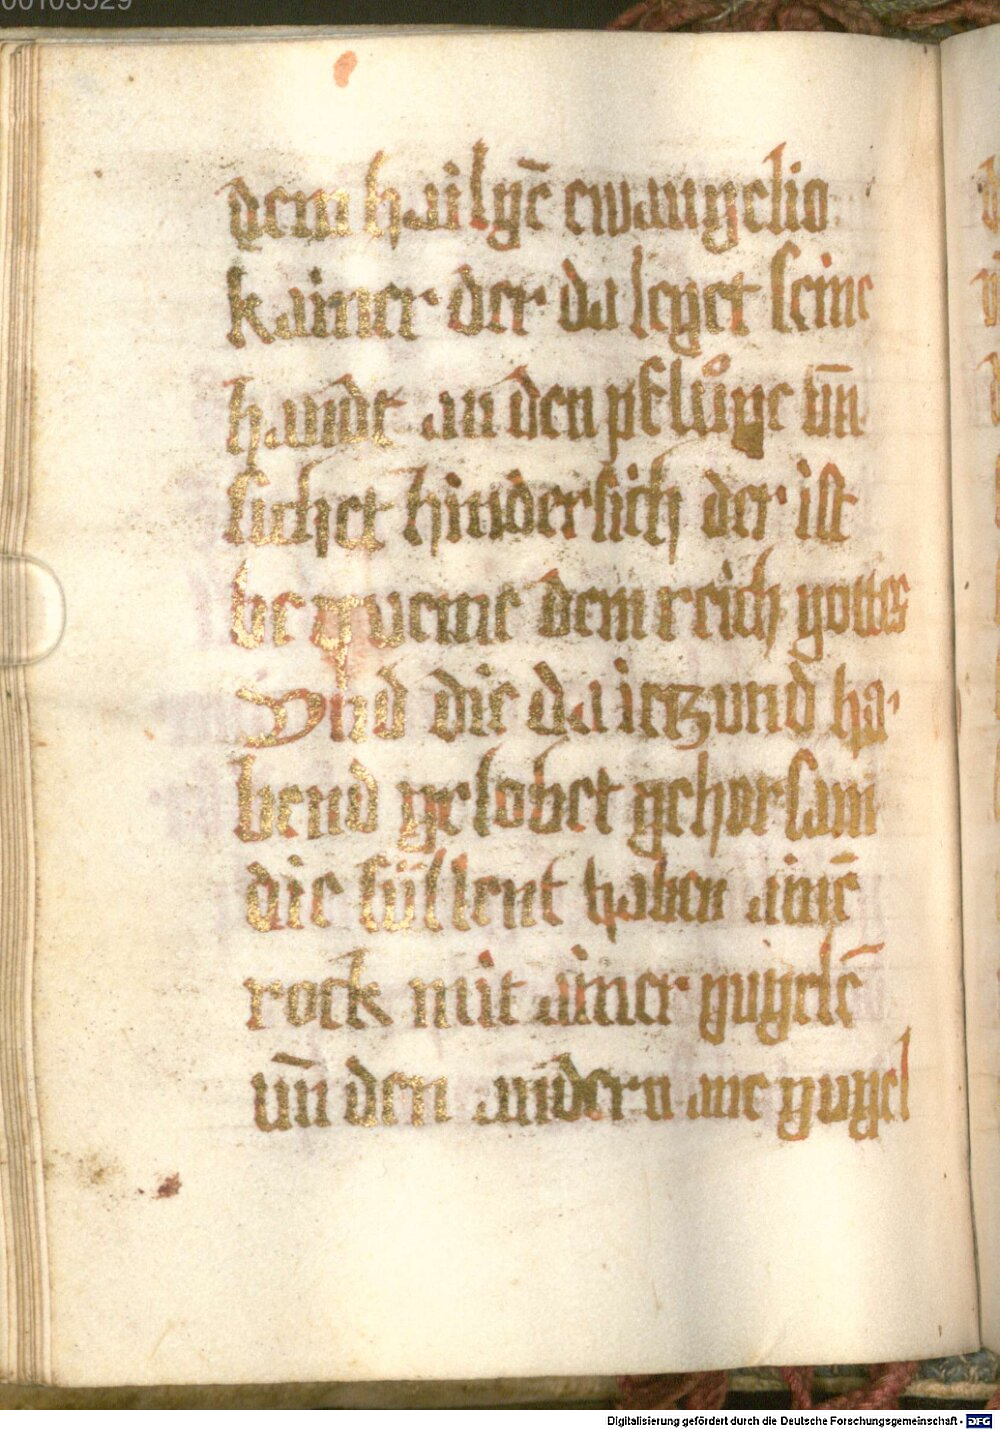 00103529
dem hailgē ewangelio
kainer der da leget seine
hande an den pflůge vn̄
sichet hindersich der ist
bequeme dem reich gottes
Vnd die da ietzund ha-
bend gelobet gehorsam
die süllent haben ainē
rock mit ainer gugelē
vn̄ den andern ane gugel
Digitalisierung gefördert durch die Deutsche Forschungsgemeinschaft - DFG